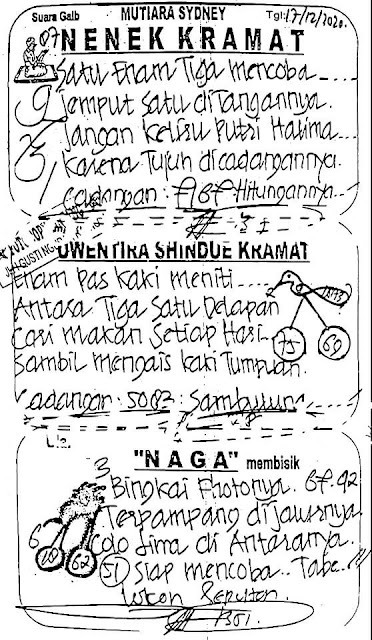 Suara Gaib MUTIARA SYDNEY Tgl: 17/12/2020.
NENEK KRAMAT
Satu Enam Tiga mencoba
Jemput satu diTangannya.
Jangan Keliru Putri Halima
Karena Tujuh dicadangannya.
Cadangan: Hitungannya
UWENTIRA SHINDUE KRAMAT
Enam pas kaki meniti
Antara Tiga satu Delapan
Cari makan setiap Hari
Sambil mengais kaki Tumpuan.
75 69
Cadangan: 5082: Sambungun
"NAGA" membisik
3 Bingkai Photonya. 67.92
Terpampang dijaursnya
6 Colo lima di Antaranya.
18 62
51 Siap mencoba.. Tabe..!!!